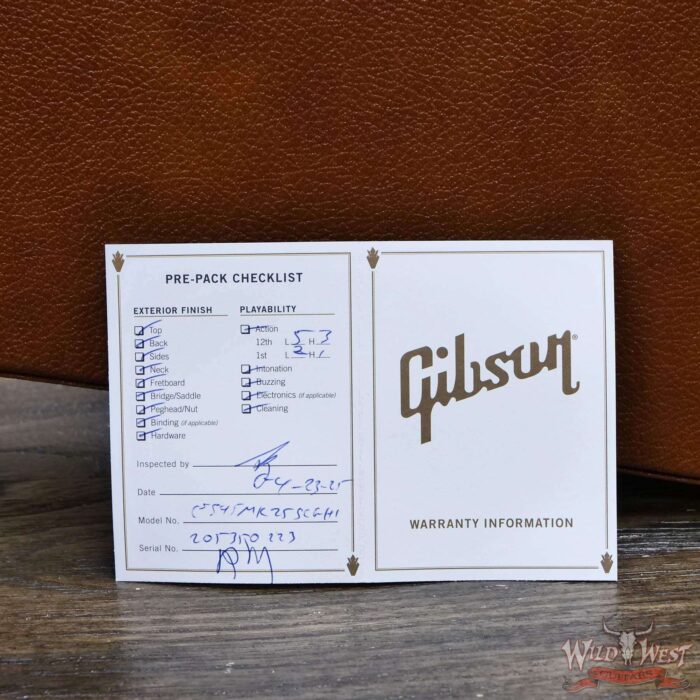 PRE-PACK CHECKLIST
EXTERIOR FINISH
Top
Back
Sides
Neck
Fretboard
Bridge/Saddle
Peghead/Nut
Binding (if applicable)
Hardware
PLAYABILITY
Action
12th L 5 H 3
1st L 2 H 1
Intonation
Buzzing
Electronics (if applicable)
Cleaning
Inspected by
Date 04-23-25
Model No.
Serial No. 205350223
Gibson®
WARRANTY INFORMATION
WILD WEST
GUITARS